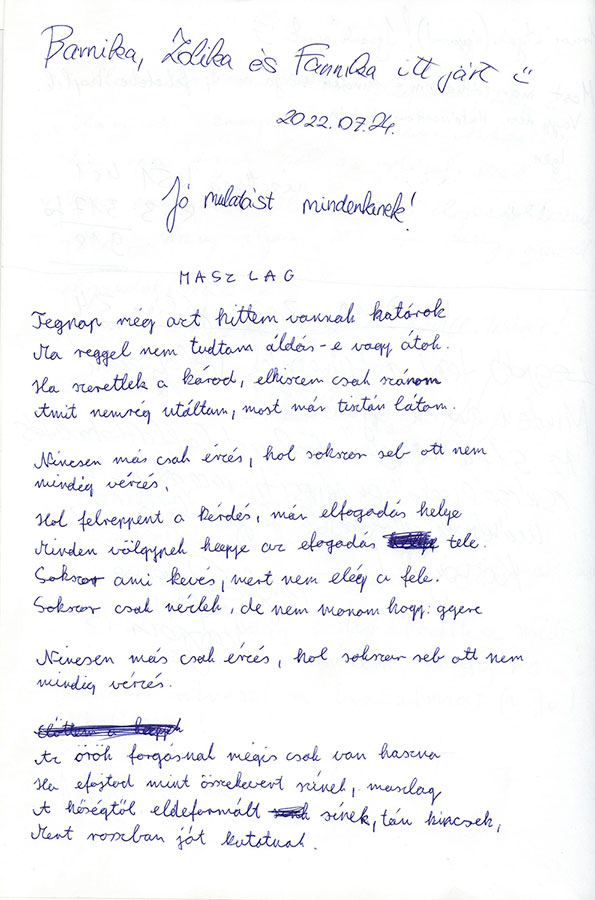 Barnika, Zolika és Fannika itt járt ü
2022.07.24.
Jó mulatást mindenkinek!
MASZLAG
Tegnap még azt hittem vannak határok
Ma reggel nem tudtam áldás-e vagy átok.
Ha szeretlek a károd, elhiszem csak szánom
Amit nemrég utáltam, most már tisztán látom.
Nincsen más csak érzés, hol sokszor seb ott nem
mindig vérzés.
Hol felreppent a kérdés, már elfogadás helye
Minden völgynek hegye az efogadás tele.
Sokszor ami kevés, mert nem elég a fele.
Sokszor csak nézlek, de nem monom hogy: gyere
Nincsen más csak érzés, hol sokszor seb ott nem
mindig vérzés.
Az örök forgásnak mégis csak van haszna
Ha efojtod mint összekevert színek, maszlag
A hőségtől eldeformált sínek, tán kincsek,
Mert rosszban jót kutatnak.